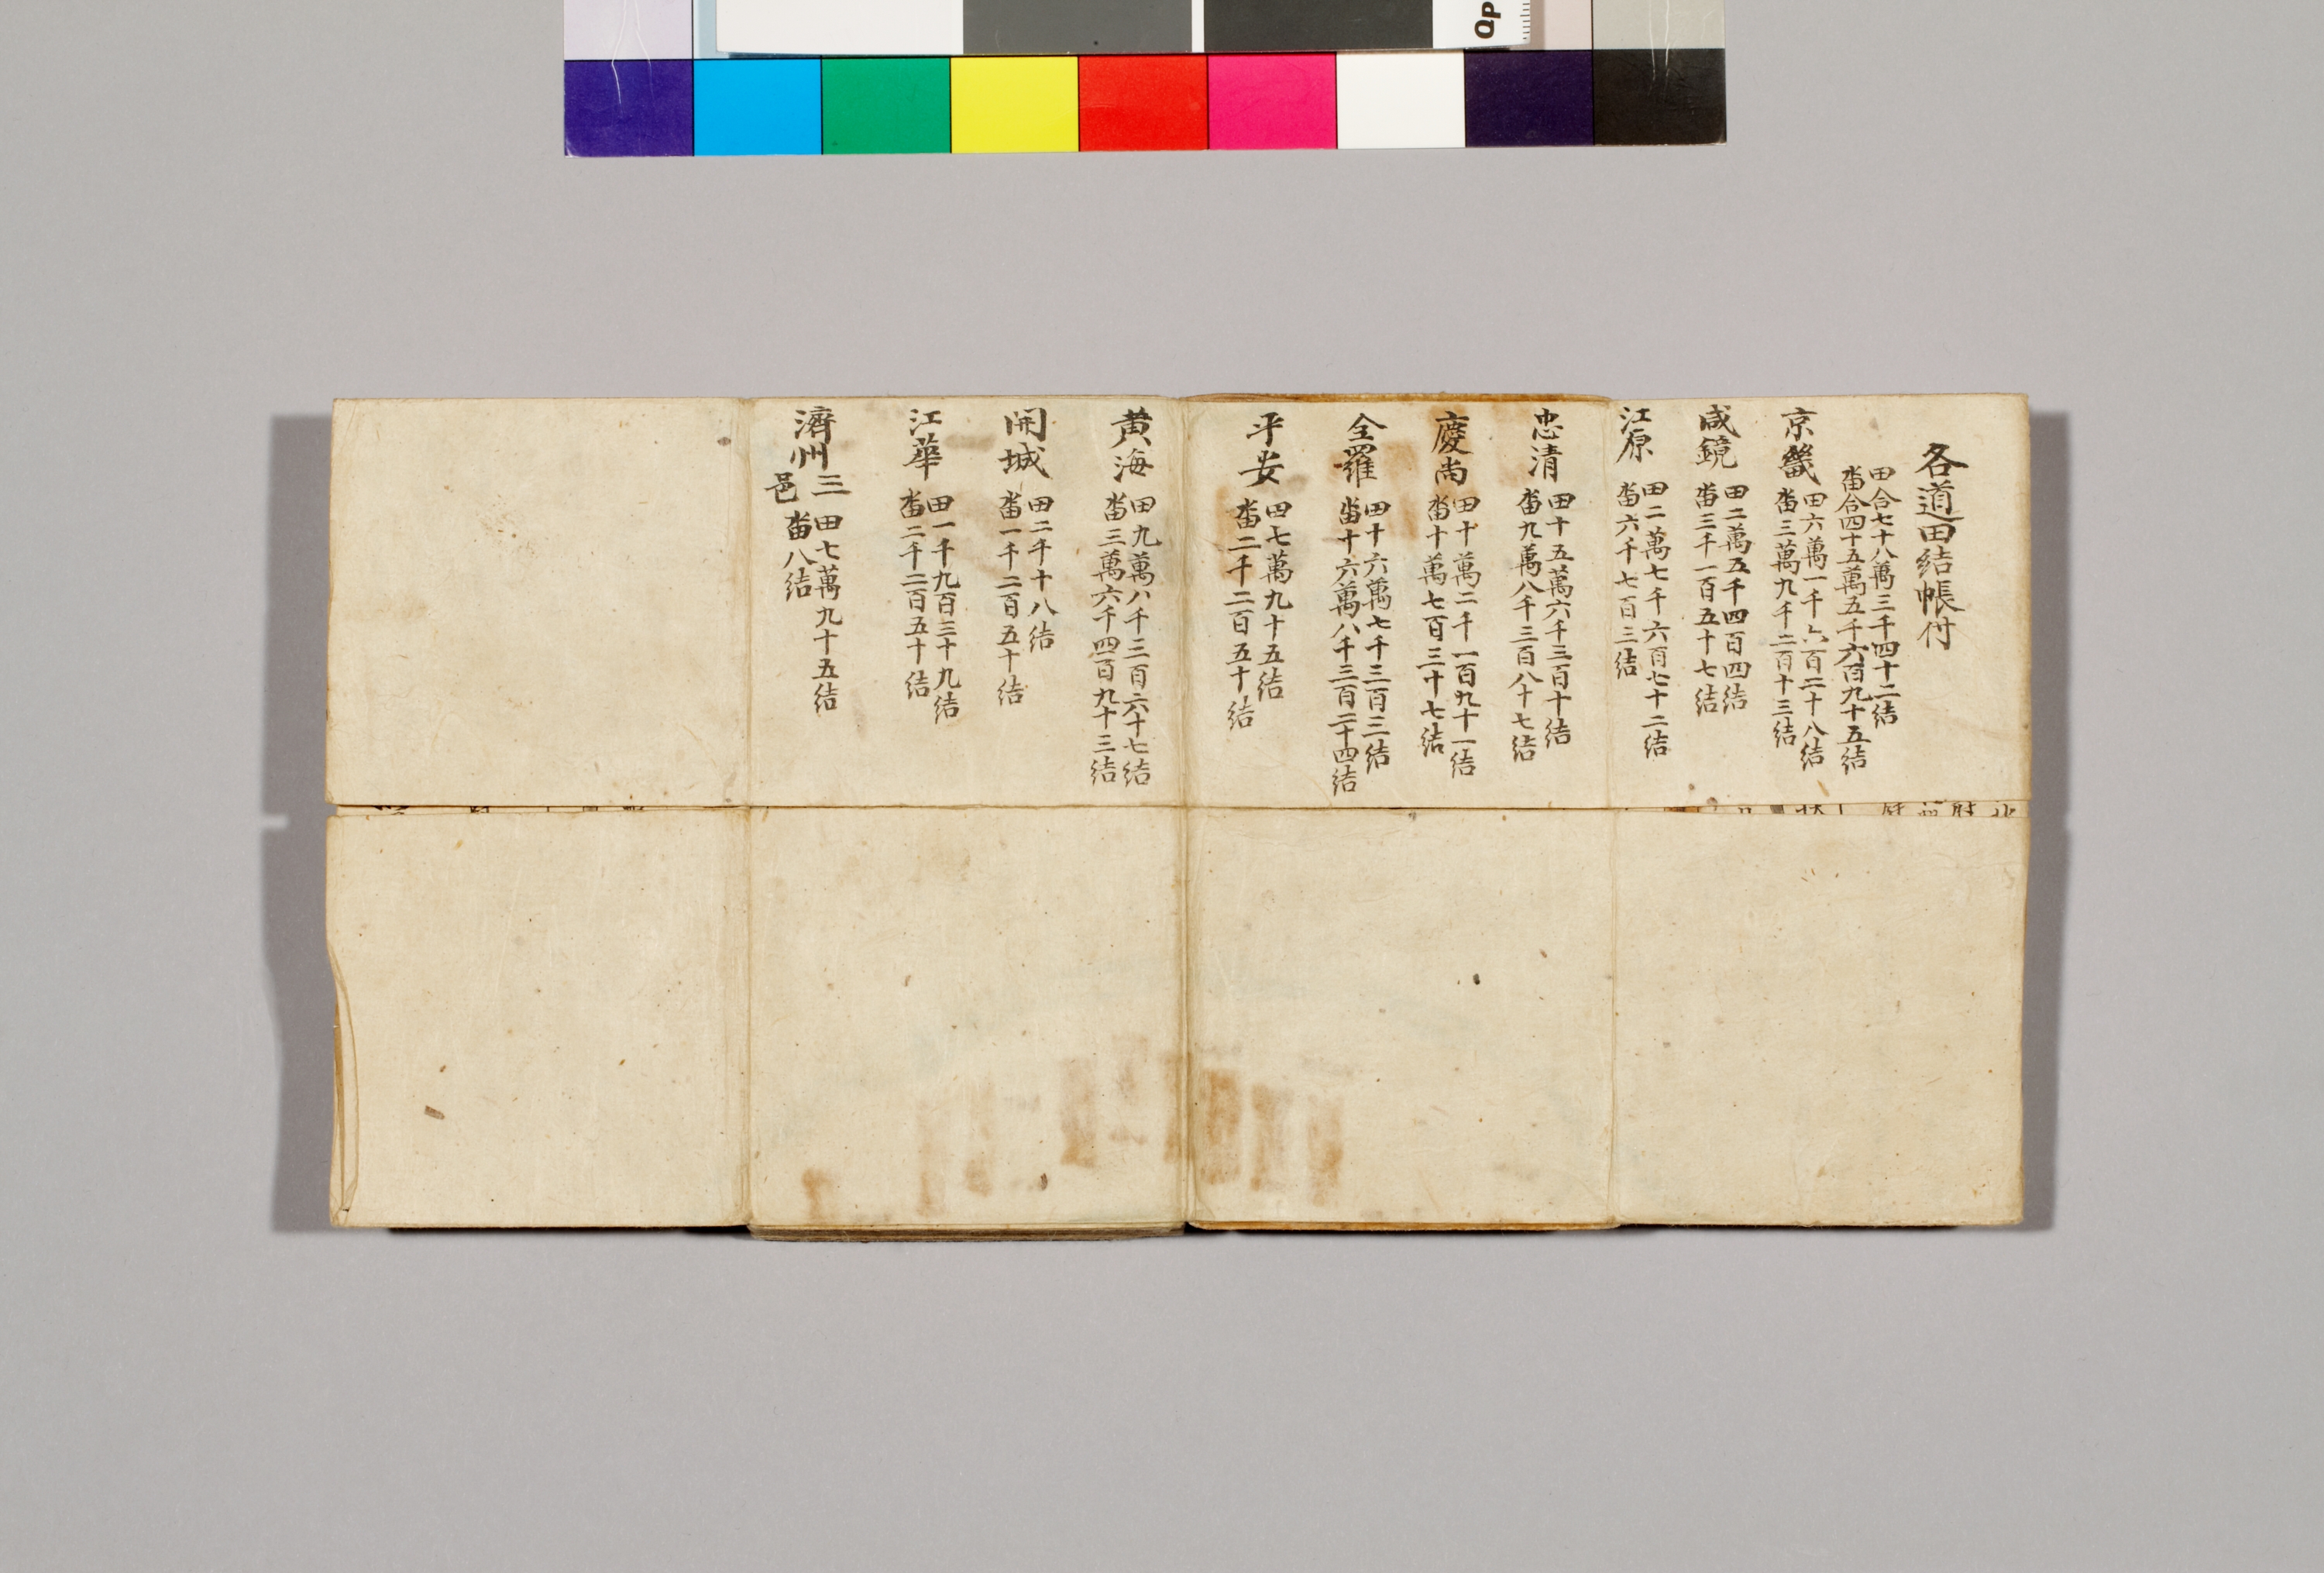 各道田結帳付
田合七十八萬三千四十二結
畓合四十五萬五千六百九十五結
京畿
田六萬一千六百二十八結
畓三萬九千二百十三結
咸鏡
田二萬五千四百四結
畓三千一百五十七結
江原
田二萬七千六百七十二結
畓六千七百三結
忠清
田十五萬六千三百十結
畓九萬八千三百八十七結
慶尚
田十萬二千一百九十一結
畓十萬七百三十七結
全羅
田十六萬七千三百三結
畓十六萬八千三百二十四結
平安
田七萬九十五結
畓二千二百五十結
黄海
田九萬八千三百六十七結
畓三萬六千四百九十三結
開城
田二千十八結
畓一千二百五十結
江華
田一千九百三十九結
畓二千二百五十結
濟州三邑
田七萬九十五結
畓八結
QP